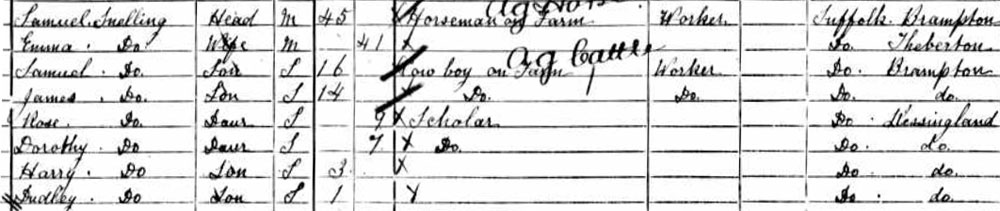 Ag Horse
Samuel Snelling Head M 45 X Horseman on Farm Worker Suffolk Brampton
Emma Do Wife M 41 X Do. Theberton
Ag Cattle
Samuel Do. Son S 16 Cow boy on Farm Worker Do. Brampton
James Do. Son S 14 Do. Do. Do. do.
Rose. Do. Daur S 9 X Scholar Do Kessingland
Dorothy. Do Daur S 7 X Do. Do. do.
Harry. Do Son S 3 X Do. do.
Dudley. Do Son S 1 X Do. do.